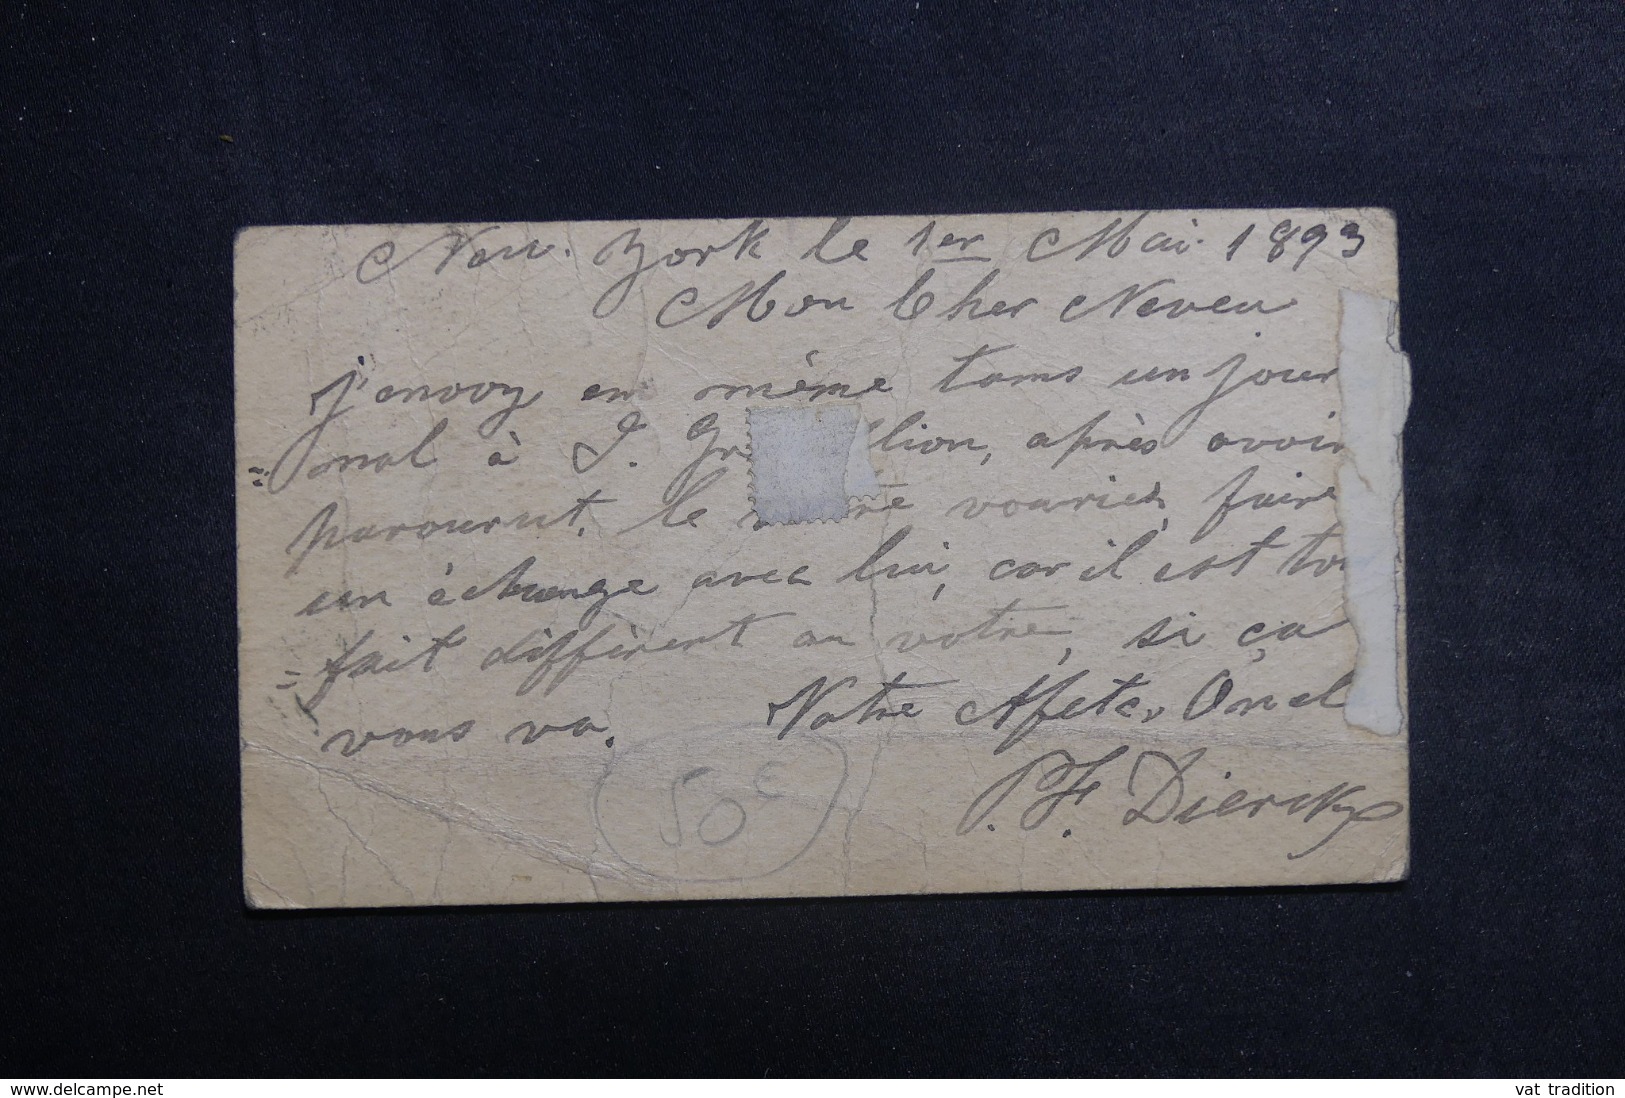 New. York le 1er Mai. 1893
Mon Cher Neveu
j'envoy en même tams un jour
= nal à J. Gr llion, après avoir
parourut, le re vouriez faire
un échange avec lui, car il est to
= fait différent au vôtre, si ça
vous va. Votre Affete. Oncl
P. F. Dierckx
50c
www.delcampe.net
vat tradition